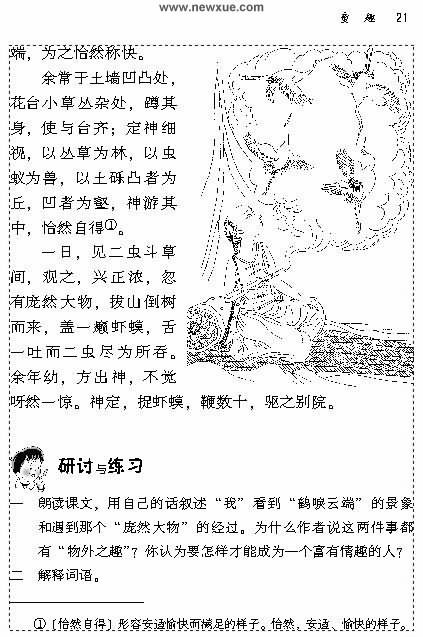 www.newxue.com
童 趣 21
端，为之怡然称快。
余常于土墙凹凸处，
花台小草丛杂处，蹲其
身，使与台齐；定神细
视，以丛草为林，以虫
蚁为兽，以土砾凸者为
丘，凹者为壑，神游其
中，怡然自得①。
一日，见二虫斗草
间，观之，兴正浓，忽
有庞然大物，拔山倒树
而来，盖一癞虾蟆，舌
一吐而二虫尽为所吞。
余年幼，方出神，不觉
呀然一惊。神定，捉虾蟆，鞭数十，驱之别院。
研讨与练习
一 朗读课文，用自己的话叙述“我”看到“鹤唳云端”的景象
和遇到那个“庞然大物”的经过。为什么作者说这两件事都
有“物外之趣”？你认为要怎样才能成为一个富有情趣的人？
二 解释词语。
①〔怡然自得〕形容安适愉快而满足的样子。怡然，安适、愉快的样子。